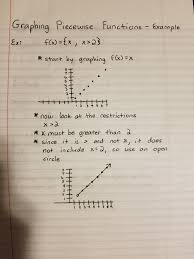 Graphing Piecewise Functions - Example
Ex: f(x)={x , x>2}
* start by graphing f(x)=x
* now look at the restrictions
x>2
* x must be greater than 2
* since it is > and not ≥, it does
not include x=2, so use an open
circle